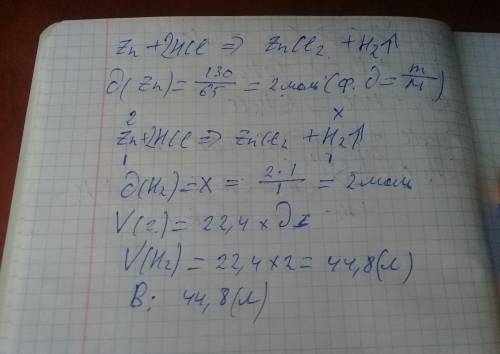 Zn + 2HCl => ZnCl₂ + H₂↑
∂(Zn) = 130/65 = 2 моль (ф. ∂ = m/M)
2 x
Zn + 2HCl => ZnCl₂ + H₂↑
1 1
∂(H₂) = x = 2·1/1 = 2 моль
V(г.) = 22,4 x ∂
V(H₂) = 22,4 x 2 = 44,8 (л)
В: 44,8 (л)